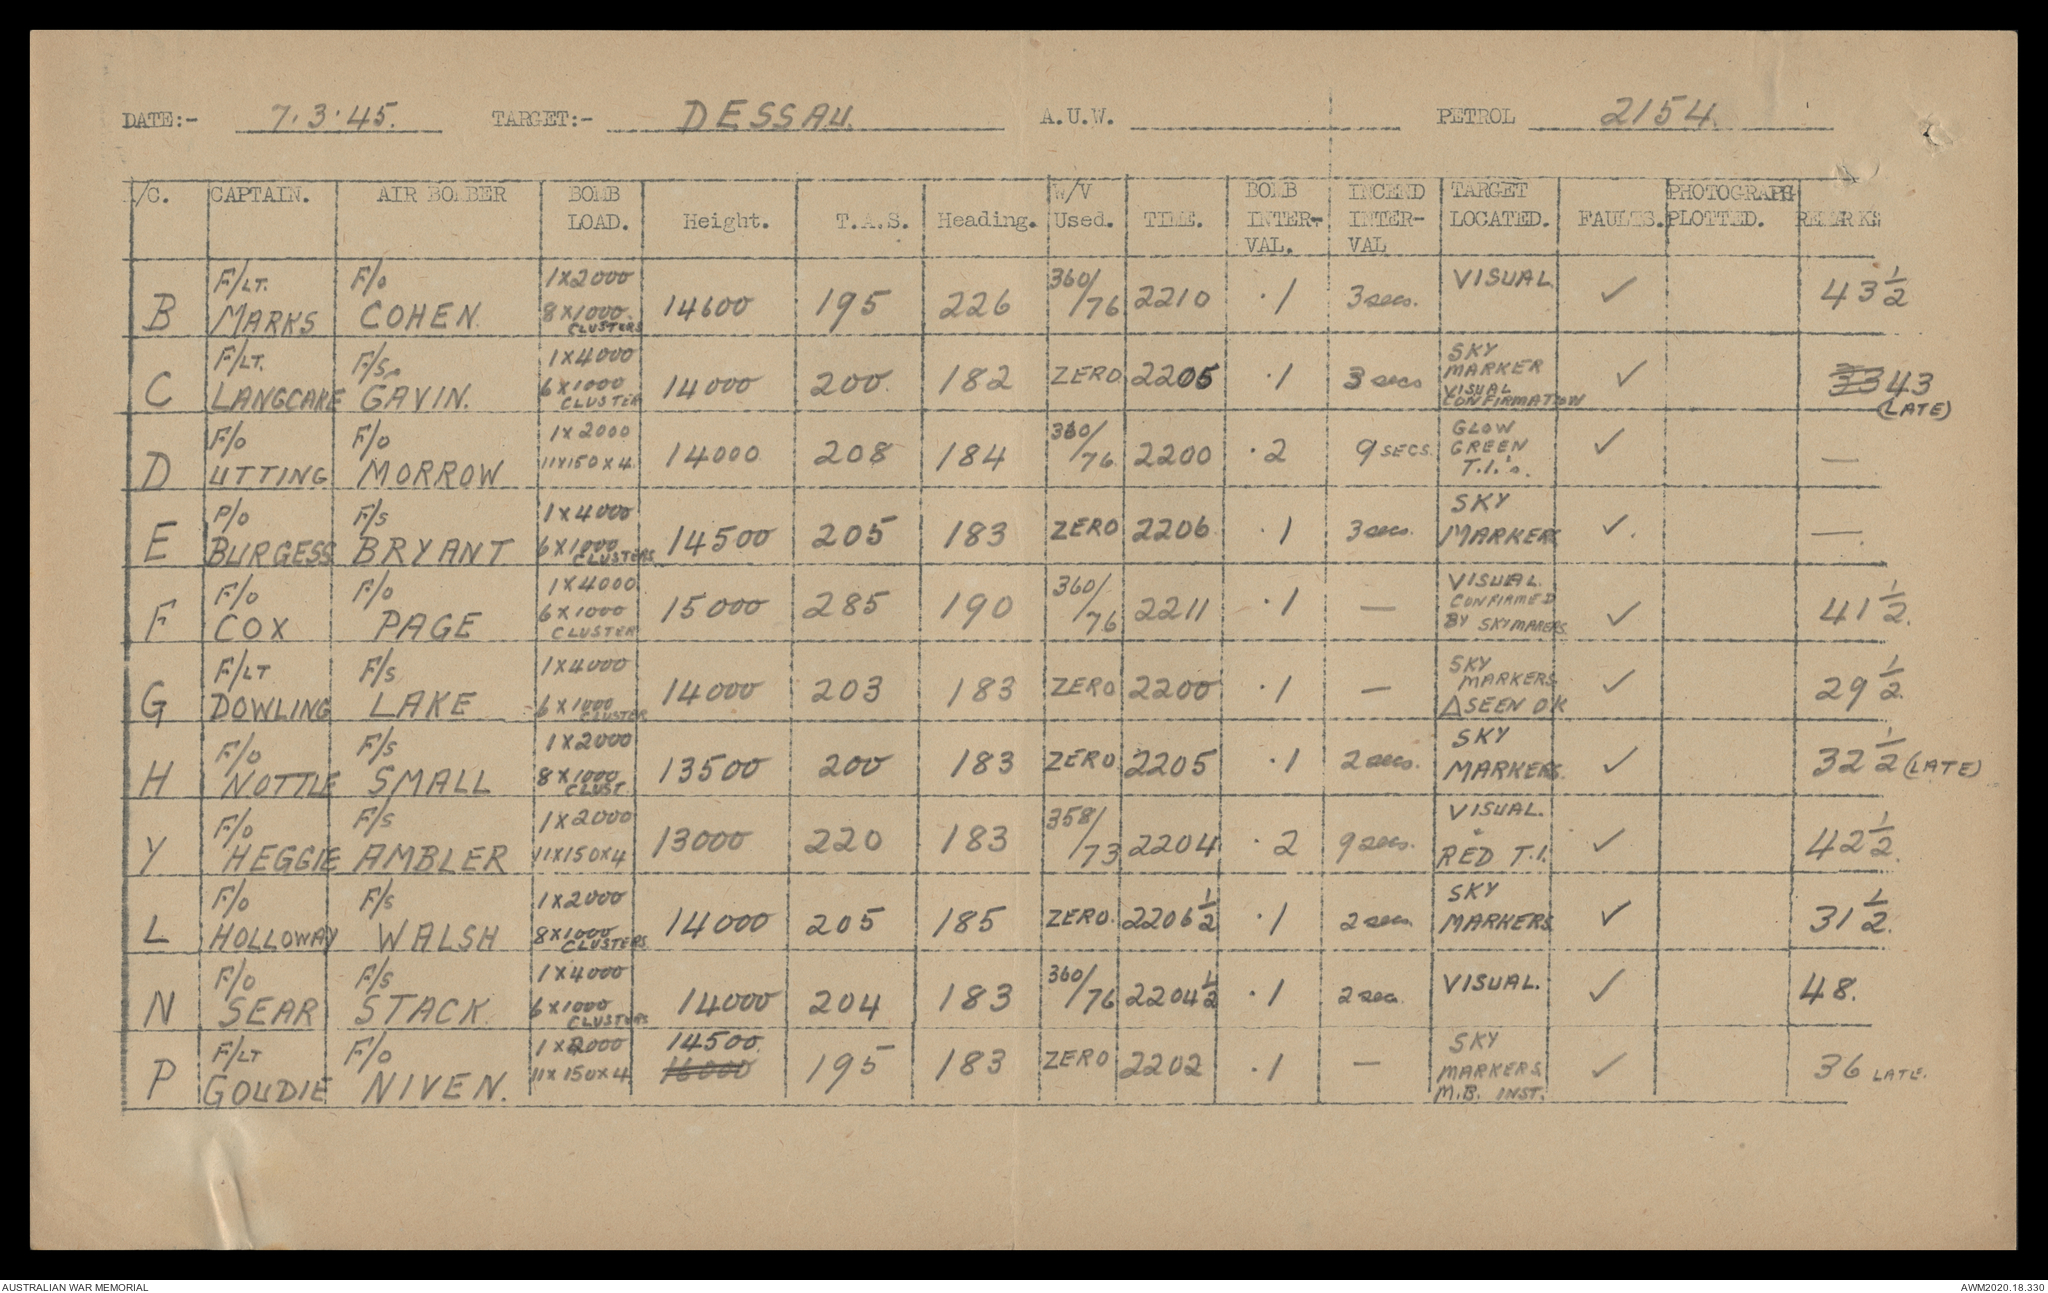 DATE:- 7.3.45. TARGET:- DESSAU. A.U.W. PETROL 2154.
/C. CAPTAIN. AIR BOMBER BOMB LOAD. Height. T.A.S. Heading. W/V Used. TIME. BOMB INTER-VAL. INCEND INTER-VAL TARGET LOCATED. FAULTS. PHOTOGRAPH PLOTTED. REMARKS
B F/LT. MARKS F/O COHEN. 1X2000 8X1000 CLUSTERS 14600 195 226 360/76 2210 .1 3 secs. VISUAL ✓ 43½
C F/LT. LANGCAKE F/S. GAVIN. 1X4000 6X1000 CLUSTER 14000 200. 182 ZERO. 2205 .1 3 secs SKY MARKER VISUAL CONFIRMATION ✓ 43 (LATE)
D F/O UTTING F/O MORROW 1X2000 11X150X4. 14000 208 184 360/76. 2200 .2 9 SECS. GLOW GREEN T.I.'s. ✓ —
E P/O BURGESS F/S BRYANT 1X4000 6X1000 CLUSTERS. 14500 205 183 ZERO 2206 .1 3 secs. SKY MARKERS ✓. —.
F F/O COX F/O PAGE 1X4000. 6X1000 CLUSTER 15000 285 190 360/76 2211 .1 — VISUAL. CONFIRMED BY SKYMAKERS. ✓ 41½.
G F/LT DOWLING F/S LAKE 1X4000 6X1000 CLUSTER 14000 203 183 ZERO 2200 .1 — SKY MARKERS. △ SEEN OK ✓ 29½
H F/O NOTTLE F/S SMALL 1X2000 8X1000 CLUST. 13500 200 183 ZERO. 2205 .1 2 secs. SKY MARKERS. ✓ 32½ (LATE)
Y F/O HEGGIE F/S AMBLER 1X2000 11X150X4 13000 220 183 358/73 2204 .2 9 secs. VISUAL. RED T.I. ✓ 42½.
L F/O HOLLOWAY F/S WALSH 1X2000 8X1000 CLUSTERS 14000 205 185 ZERO. 2206½ .1 2 secs. SKY MARKERS. ✓ 31½.
N F/O SEAR F/S STACK. 1X4000 6X1000 CLUSTERS 14000 204 183 360/76 2204½ .1 2 sec. VISUAL. ✓ 48.
P F/LT GOUDIE F/O NIVEN. 11X150X4. 14500. 16000 195 183 ZERO 2202 .1 — SKY MARKERS. M.B. INST. ✓ 36 LATE.
AUSTRALIAN WAR MEMORIAL AWM2020.18.330